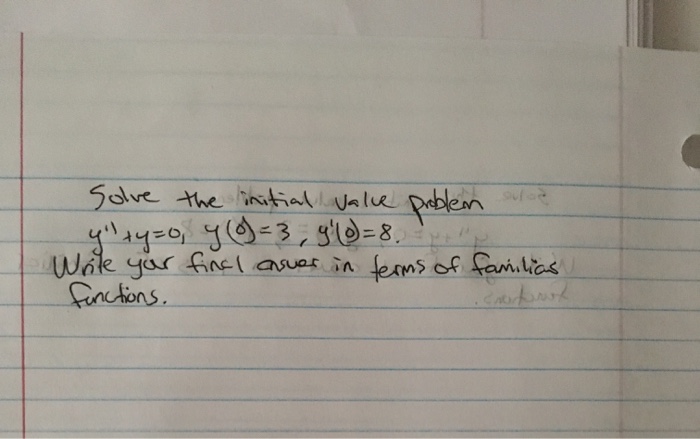 Solve the initial value problem
y''+y=0, y(0)=3, y'(0)=8.
Write your final answer in terms of familiar
functions.